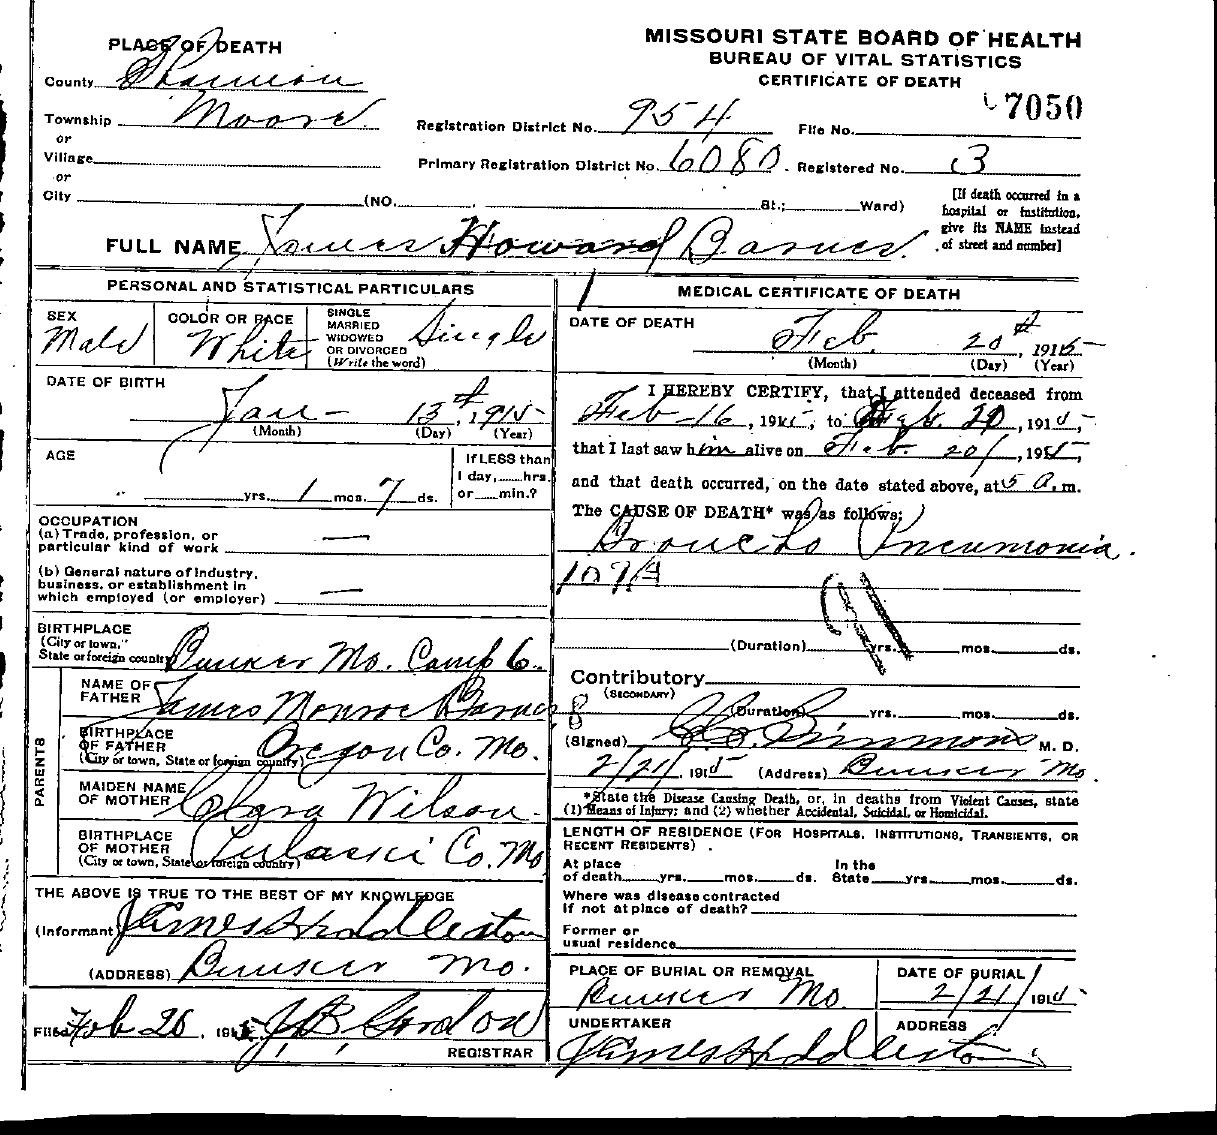 MISSOURI STATE BOARD OF HEALTH
BUREAU OF VITAL STATISTICS
CERTIFICATE OF DEATH
PLACE OF DEATH
County Shannon
Township Moore
or
Village
or
City (NO. St.; Ward)
Registration District No. 954 File No. 7050
Primary Registration District No. 6080. Registered No. 3
[If death occurred in a
hospital or institution,
give its NAME instead
of street and number]
FULL NAME James Howard Barnes.
PERSONAL AND STATISTICAL PARTICULARS
SEX
Male
COLOR OR RACE
White
SINGLE
MARRIED
WIDOWED
OR DIVORCED
(Write the word)
Single
DATE OF BIRTH
Jan - 13th, 1915
(Month) (Day) (Year)
AGE
yrs. 1 mos. 7 ds.
If LESS than
1 day, hrs.
or min.?
OCCUPATION
(a) Trade, profession, or
particular kind of work —
(b) General nature of industry,
business, or establishment in
which employed (or employer) —
BIRTHPLACE
(City or town,
State or foreign country) Bunker Mo. Camp 6.
PARENTS
NAME OF
FATHER James Monroe Barnes
BIRTHPLACE
OF FATHER
(City or town, State or foreign country) Oregon Co. Mo.
MAIDEN NAME
OF MOTHER Clara Wilson.
BIRTHPLACE
OF MOTHER
(City or town, State or foreign country) Pulaski Co. Mo
THE ABOVE IS TRUE TO THE BEST OF MY KNOWLEDGE
(Informant James Huddleston
(ADDRESS) Bunker Mo.
Filed Feb 26, 1915 J. B. Gordon
REGISTRAR
MEDICAL CERTIFICATE OF DEATH
DATE OF DEATH
Feb. 20th, 1915
(Month) (Day) (Year)
I HEREBY CERTIFY, that I attended deceased from
Feb - 16, 1915, to Feb. 20, 1915,
that I last saw him alive on Feb. 20, 1915,
and that death occurred, on the date stated above, at 5 a.m.
The CAUSE OF DEATH* was as follows:
Broncho Pneumonia.
107A
(Duration) yrs. mos. ds.
Contributory
(SECONDARY)
(Duration) yrs. mos. ds.
(Signed) Simmons M. D.
2/21, 1915 (Address) Bunker Mo.
*State the Disease Causing Death, or, in deaths from Violent Causes, state
(1) Means of Injury; and (2) whether Accidental, Suicidal, or Homicidal.
LENGTH OF RESIDENCE (FOR HOSPITALS, INSTITUTIONS, TRANSIENTS, OR
RECENT RESIDENTS).
At place In the
of death yrs. mos. ds. State yrs. mos. ds.
Where was disease contracted
if not at place of death?
Former or
usual residence
PLACE OF BURIAL OR REMOVAL
Bunker Mo.
DATE OF BURIAL
2/21/1915
UNDERTAKER
James Huddleston
ADDRESS